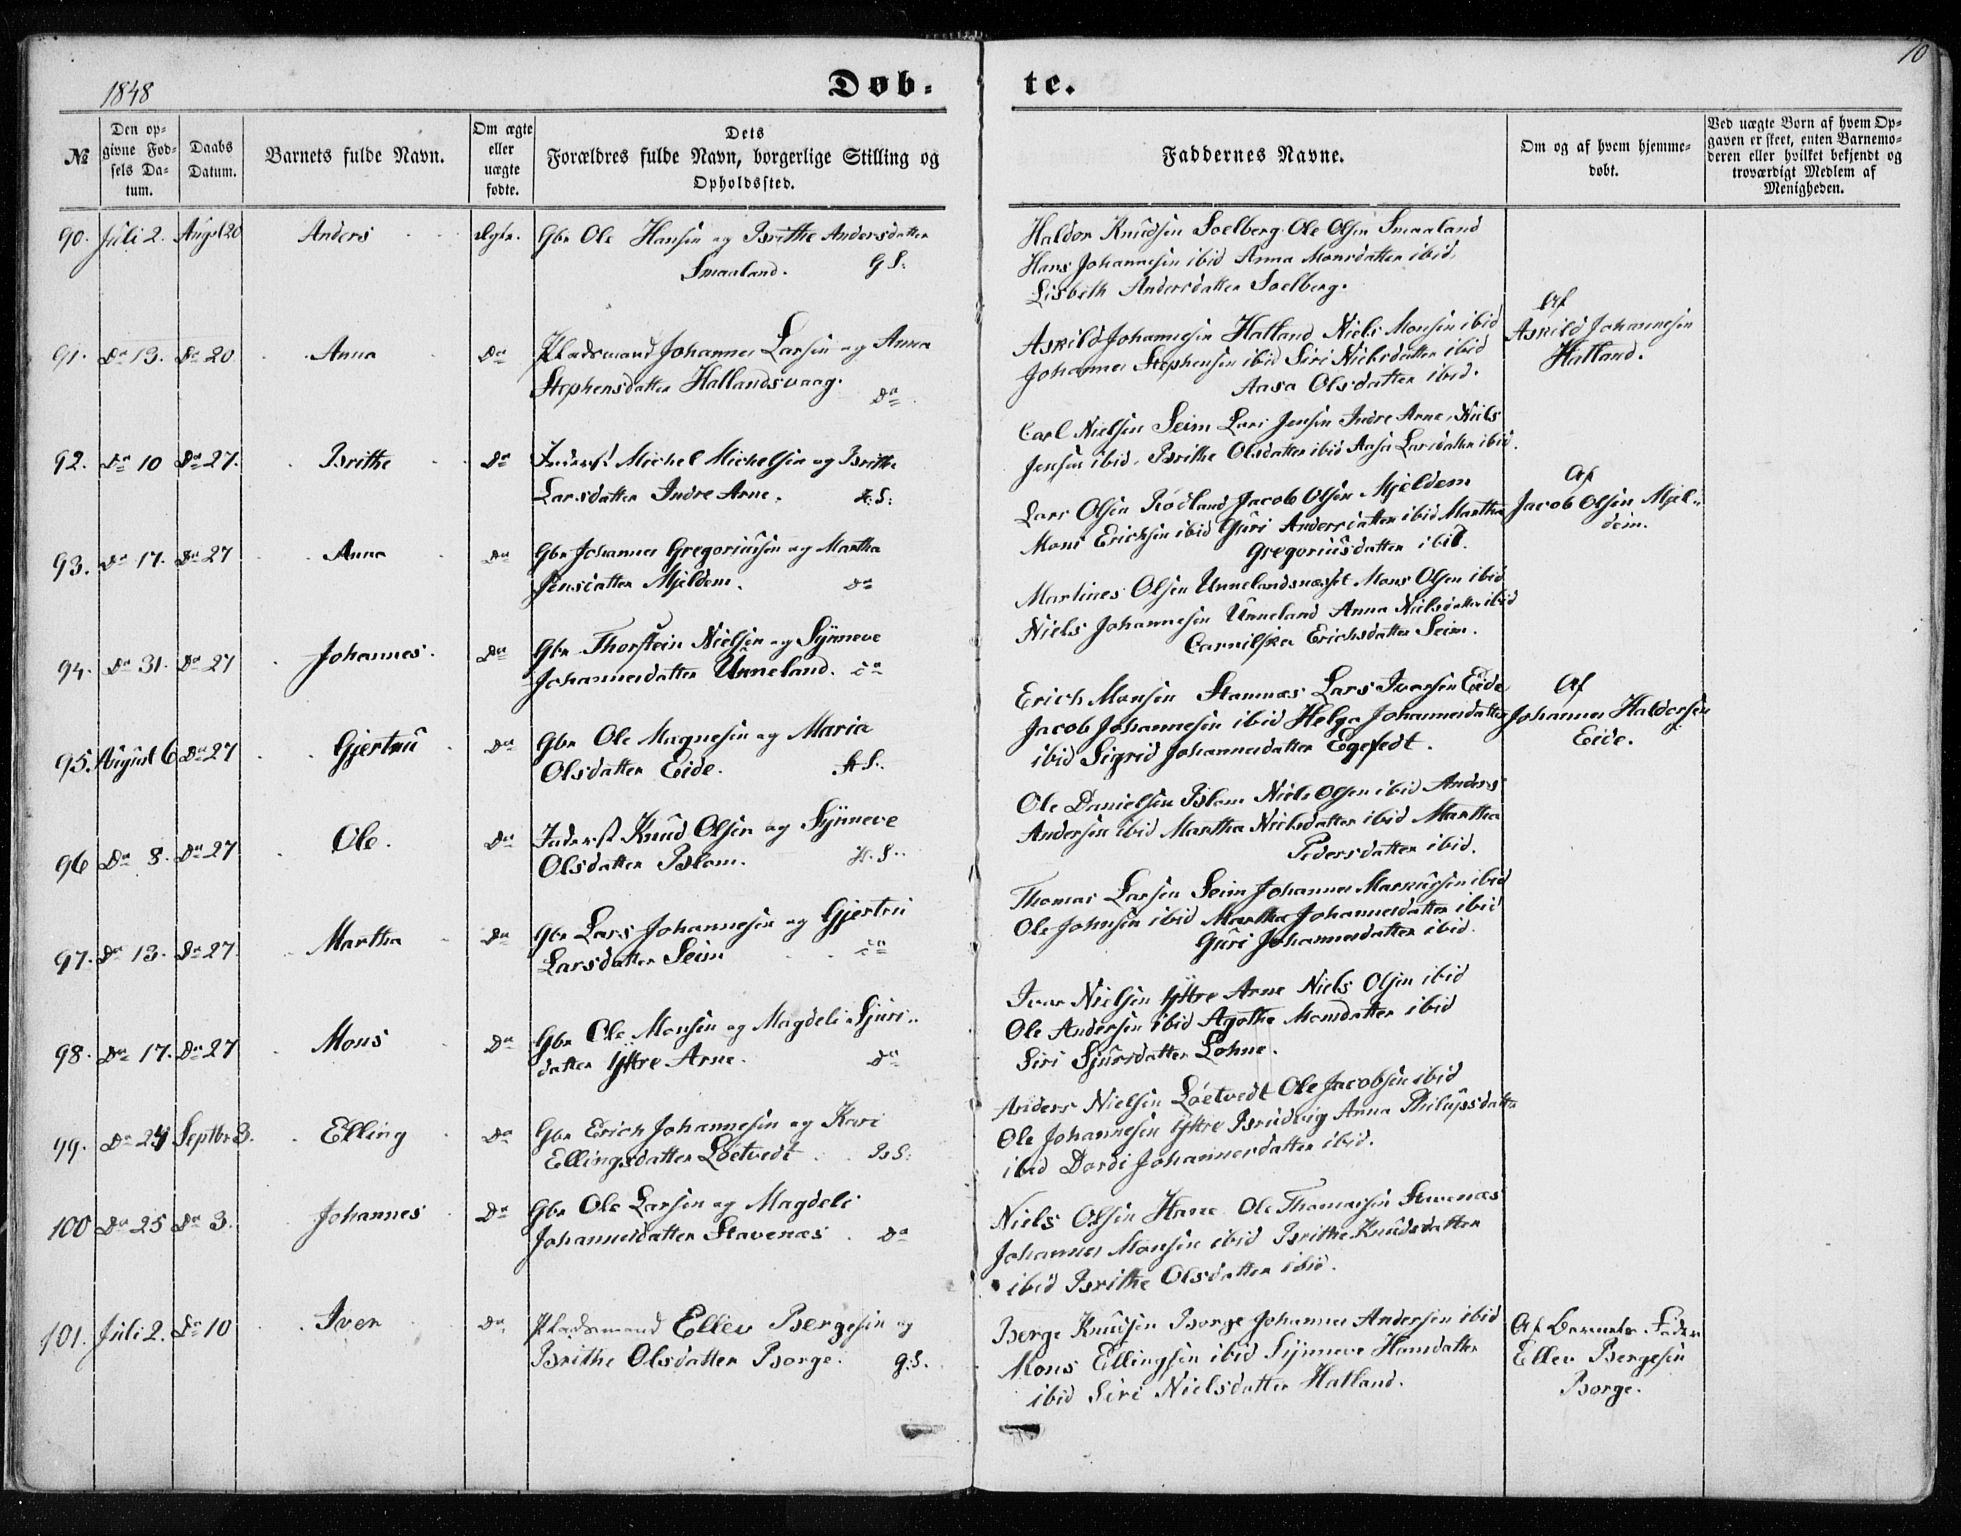 1848
Døb-
te.
10
№
Den op-
givne Fød-
sels Da-
tum.
Daabs
Datum.
Barnets fulde Navn.
Om ægte
eller
uægte
fødte.
Dets
Forældres fulde Navn, borgerlige Stilling og
Opholdssted.
Faddernes Navne.
Om og af hvem hjemme-
døbt.
Ved uægte Børn af hvem Op-
gaven er skeet, enten Barnemo-
deren eller hvilket bekjendt og
troværdigt Medlem af
Menigheden.
90. Juli 2. Augst 20 Anders Ægte. Gbr Ole Hansen og Brithe Andersdatter
Smaaland. G S:
Haldor Knudsen Soelberg Ole Olsen Smaaland
Hans Johannesen ibid Anna Monsdatter ibid,
Lisbeth Andersdatter Soelberg.
91. Do 13. Do 20 Anna Do Pladsmand Johannes Larsen og Anna
Stephensdatter Hallandsvaag. Do
Askild Johannesen Hatland Niels Monsen ibid
Johannes Stephensen ibid Siri Nielsdatter ibid
Aasa Olsdatter ibid.
Af
Askild Johannesen
Hatland.
92. Do 10 Do 27. Brithe Do Inderst Michel Michelsen og Brithe
Larsdatter Indre Arne. H: S:
Carl Nielsen Seim Lars Jensen Indre Arne, Niels
Jensen ibid. Brithe Olsdatter ibid Aasa Larsdatter ibid.
93. Do 17. Do 27 Anna Do Gbr Johannes Gregoriusen og Martha
Jensdatter Mjeldem. Do
Lars Olsen Rødland Jacob Olsen Mjeldem
Mons Erichsen ibid Guri Andersdatter ibid Martha
Gregoriusdatter ibid.
Af
Jacob Olsen Mjel-
dem.
94. Do 31. Do 27 Johannes. Do Gbr Thorstein Nielsen og Synneve
Johannesdatter Unneland. Do
Martines Olsen Unnelandsnæsset Mons Olsen ibid
Niels Johannesen Unneland Anna Nielsdatter ibid
Carnilska Erichsdatter Seim.
95. August 6 Do 27 Gjertru Do Gbr Ole Magnesen og Maria
Olsdatter Eide. H S:
Erich Monsen Stamnæs Lars Iversen Eide
Jacob Johannesen ibid Helga Johannesdatter
ibid Sigrid Johannesdatter Egefedt.
Af
Johannes Haldorsen
Eide.
96 Do 8. Do 27 Ole. Do Inderst Knud Olsen og Synneve
Olsdatter Blom. H. S:
Ole Danielsen Blom Niels Olsen ibid Anders
Andersen ibid Martha Nielsdatter ibid Martha
Pedersdatter ibid.
97. Do 13. Do 27 Martha Do Gbr Lars Johannesen og Gjertru
Larsdatter Seim Do
Thomas Larsen Seim Johannes Markusen ibid
Ole Johnsen ibid Martha Johannesdatter ibid
Guri Johannesdatter ibid.
98. Do 17. Do 27 Mons Do Gbr Ole Monsen og Magdeli Sjurs-
datter Yttre Arne. Do
Iver Nielsen Yttre Arne Niels Olsen ibid
Ole Andersen ibid Agathe Monsdatter ibid
Siri Sjursdatter Lohne.
99. Do 24 Septbr 3. Elling Do Gbr Erich Johannesen og Kari
Ellingsdatter Løetvedt B S:
Anders Nielsen Løetvedt Ole Jacobsen ibid
Ole Johannesen Yttre Brudvig Anna Philupsdatter
ibid Dordi Johannesdatter ibid.
100 Do 25 Do 3. Johannes Do Gbr Ole Larsen og Magdeli
Johannesdatter Stavenæs. Do
Niels Olsen Hane Ole Thomasen Stavenæs
Johannes Monsen ibid Brithe Knudsdatter
ibid Brithe Olsdatter ibid.
101. Juli 2. Do 10 Iver Do Pladsmand Ellev Bergesen og
Brithe Olsdatter Borge. G: S.
Berge Knudsen Borge Johannes Andersen ibid
Mons Ellingsen ibid Synneve Hansdatter
ibid Siri Nielsdatter Hatland.
Af Barnets Fader
Ellev Bergesen
Borge.